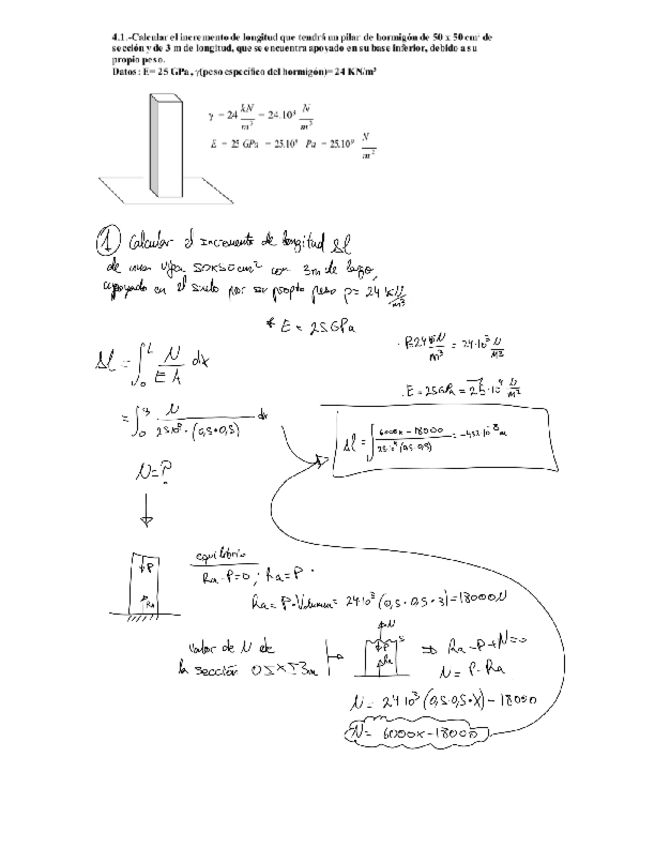 4.1.-Calcular el incremento de longitud que tendrá un pilar de hormigón de 50 x 50 cm² de
sección y de 3 m de longitud, que se encuentra apoyado en su base inferior, debido a su
propio peso.
Datos: E= 25 GPa, γ(peso específico del hormigón)= 24 KN/m³
γ = 24 kN/m³ = 24.10³ N/m³
E = 25 GPa = 25.10⁹ Pa = 25.10⁹ N/m²
① Calcular el Incremento de longitud Δl
de una viga 50x50cm² con 3m de largo,
apoyado en el suelo por su propio peso P= 24 kN/m³
* E = 25GPa
Δl = ∫₀ᴸ N/EA dx
· P=24 kN/m³ = 24·10³ N/m³
= ∫₀³ N/25·10⁹·(0,5·0,5) dx
Δl = ∫ 6000x-18000
N=?
equilibrio
Ra-P=0 ; Ra=P
P
Ra
Ra= P·Volumen= 24·10³(0,5·0,5·3)=18000N
Valor de N de
la sección
N
P
Ra
⇒ Ra-P+N=0
N= P-Ra
N= 24·10³(0,5·0,5·x)-18000
N= 6000x-18000